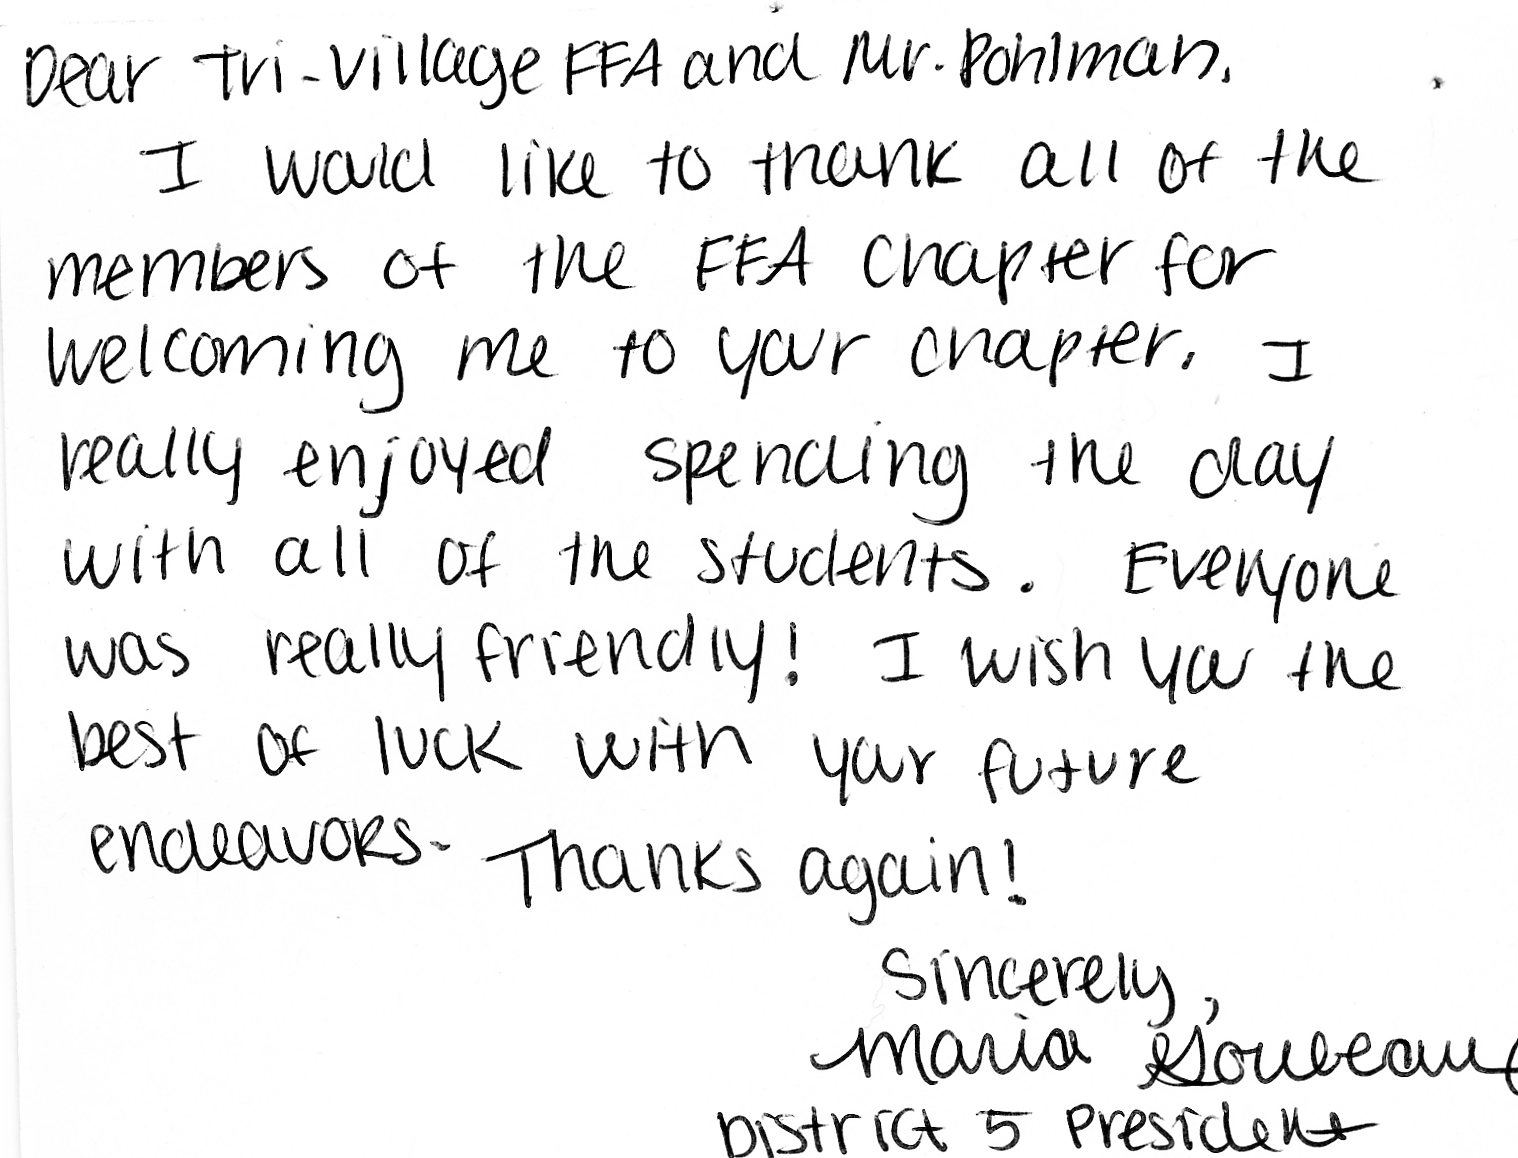 Dear Tri-Village FFA and Mr. Pohlman,
I would like to thank all of the
members of the FFA Chapter for
welcoming me to your chapter. I
really enjoyed spending the day
with all of the students. Everyone
was really friendly! I wish you the
best of luck with your future
endeavors. Thanks again!
Sincerely,
Maria Goubeaux
District 5 President